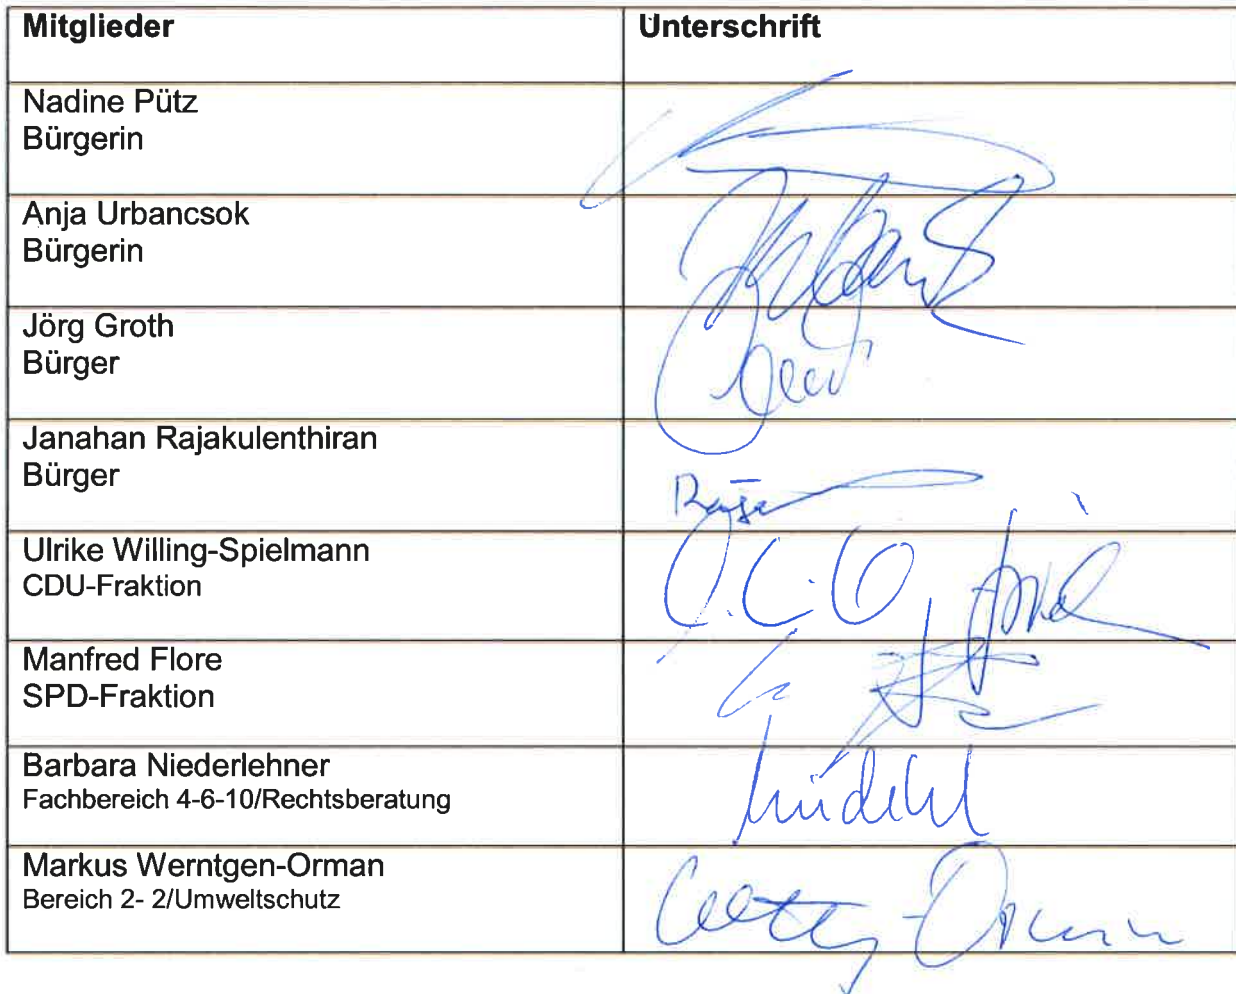 Mitglieder
Unterschrift
Nadine Pütz
Bürgerin
Anja Urbancsok
Bürgerin
Jörg Groth
Bürger
Janahan Rajakulenthiran
Bürger
Ulrike Willing-Spielmann
CDU-Fraktion
Manfred Flore
SPD-Fraktion
Barbara Niederlehner
Fachbereich 4-6-10/Rechtsberatung
Markus Werntgen-Orman
Bereich 2- 2/Umweltschutz